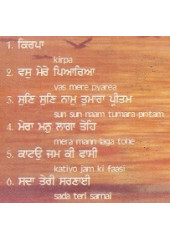 1. ਕਿਰਪਾ
kirpa
2. ਵਸੁ ਮੇਰੇ ਪਿਆਰਿਆ
vas mere pyarea
3. ਸੁਣਿ ਸੁਣਿ ਨਾਮੁ ਤੁਮਾਰਾ ਪ੍ਰੀਤਮ
sun sun naam tumara pritam
4. ਮੇਰਾ ਮਨੁ ਲਾਗਾ ਤੋਹਿ
mera mann laga tohe
5. ਕਾਟਉ ਜਮ ਕੀ ਫਾਸੀ
kativo jam ki faasi
6. ਸਦਾ ਤੇਰੀ ਸਰਣਾਈ
sada teri sarnai